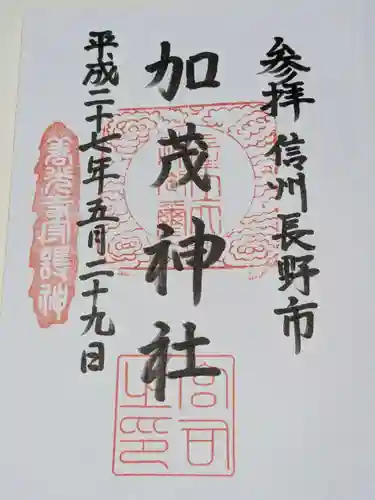 参拝 信州長野市
加茂神社
平成二十七年五月二十九日
善光寺守護神
宮司之印